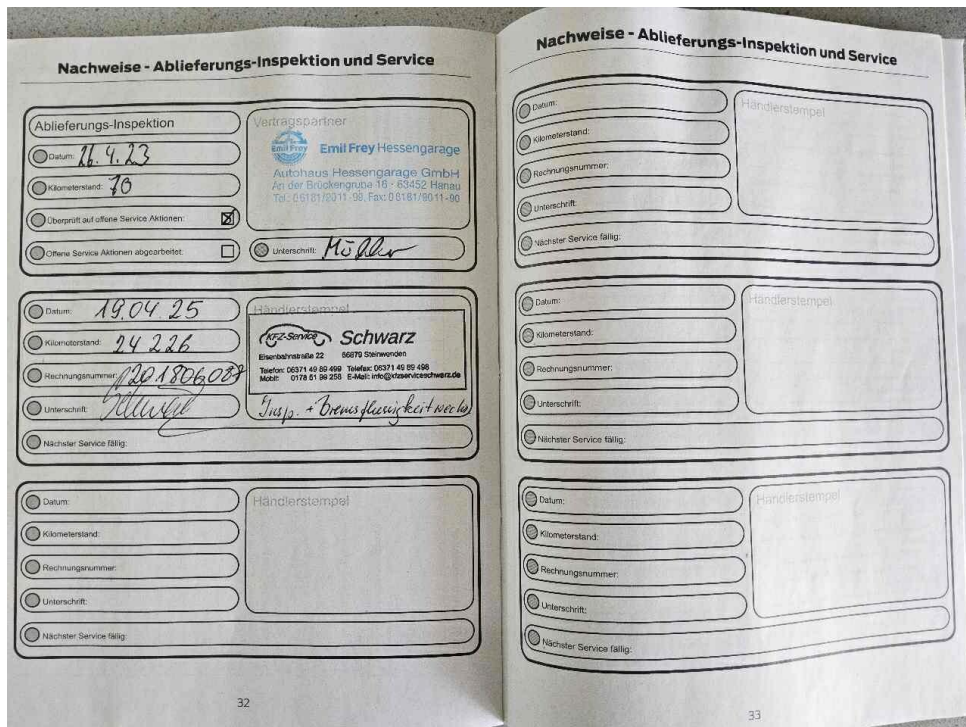 Nachweise - Ablieferungs-Inspektion und Service
Ablieferungs-Inspektion
Datum: 26.4.23
Kilometerstand: 70
Überprüft auf offene Service Aktionen:
Offene Service Aktionen abgearbeitet:
Vertragspartner
Emil Frey
Emil Frey Hessengarage
Autohaus Hessengarage GmbH
An der Brückengrube 16 · 63452 Hanau
Tel.: 06181/9011-99, Fax: 06181/9011-90
Unterschrift: Müller
Datum: 19.04.25
Kilometerstand: 24 226
Rechnungsnummer:
Unterschrift:
Nächster Service fällig:
Händlerstempel
KFZ-Service Schwarz
Eisenbahnstraße 22 66879 Steinwenden
Telefon: 06371 49 89 499 Telefax: 06371 49 89 498
Mobil: 0178 51 99 258 E-Mail: info@kfzserviceschwarz.de
Insp. + Bremsflüssigkeit
Datum:
Kilometerstand:
Rechnungsnummer:
Unterschrift:
Nächster Service fällig:
Händlerstempel
32
Nachweise - Ablieferungs-Inspektion und Service
Datum:
Kilometerstand:
Rechnungsnummer:
Unterschrift:
Nächster Service fällig:
Händlerstempel
Datum:
Kilometerstand:
Rechnungsnummer:
Unterschrift:
Nächster Service fällig:
Händlerstempel
Datum:
Kilometerstand:
Rechnungsnummer:
Unterschrift:
Nächster Service fällig:
Händlerstempel
33